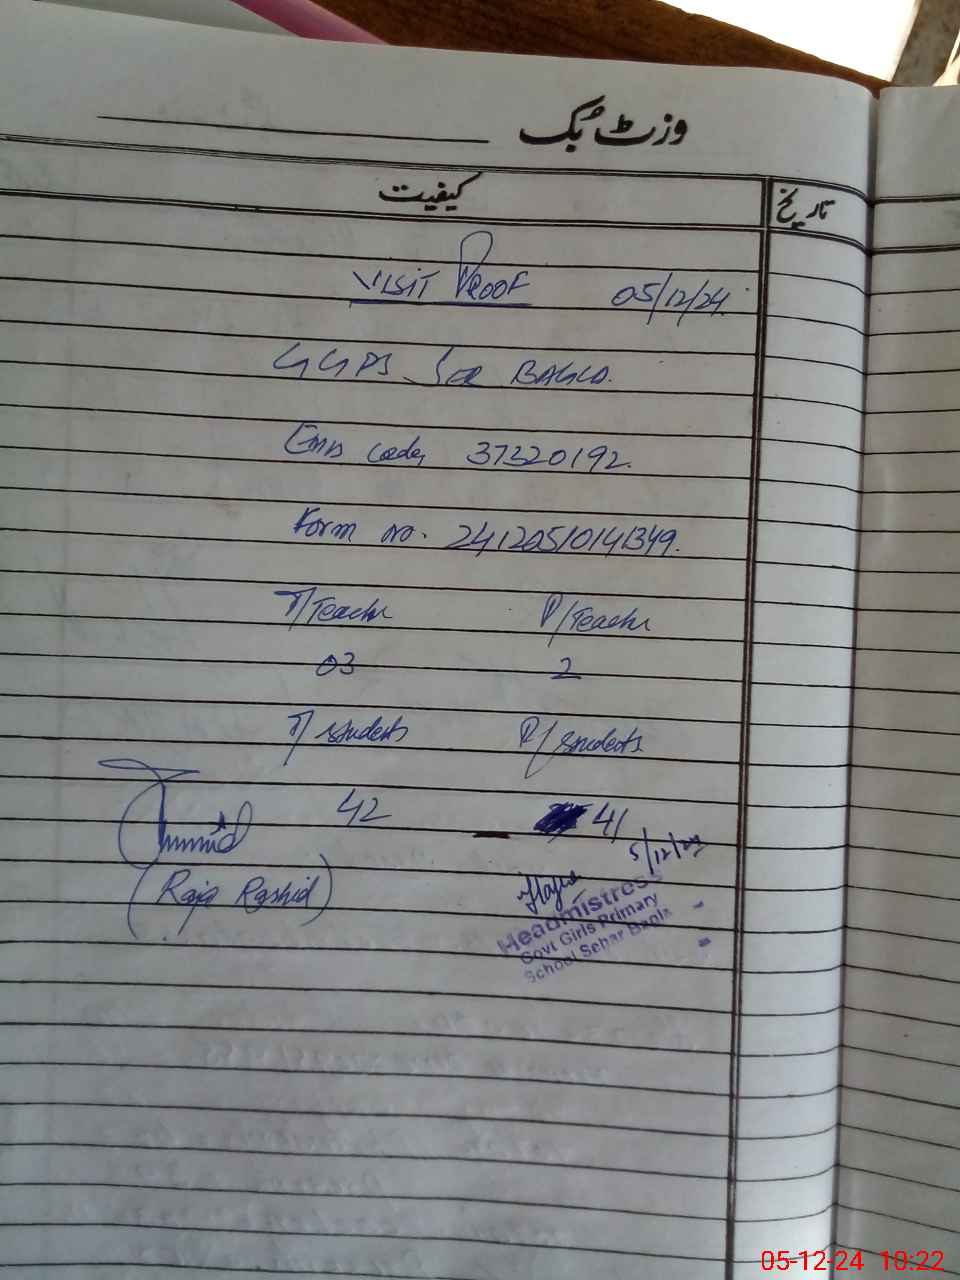 وزٹ بُک
کیفیت تاریخ
VISIT PROOF 05/12/24
GGPS SER BAGLA.
Emis code 37320192.
Form no. 24120510141349.
T/Teacher P/Teacher
03 2
T/students P/students
42 41
5/12/24
(Raja Rashid)
Headmistress
Govt Girls Primary
School Sehar Bagla
05-12-24 10:22